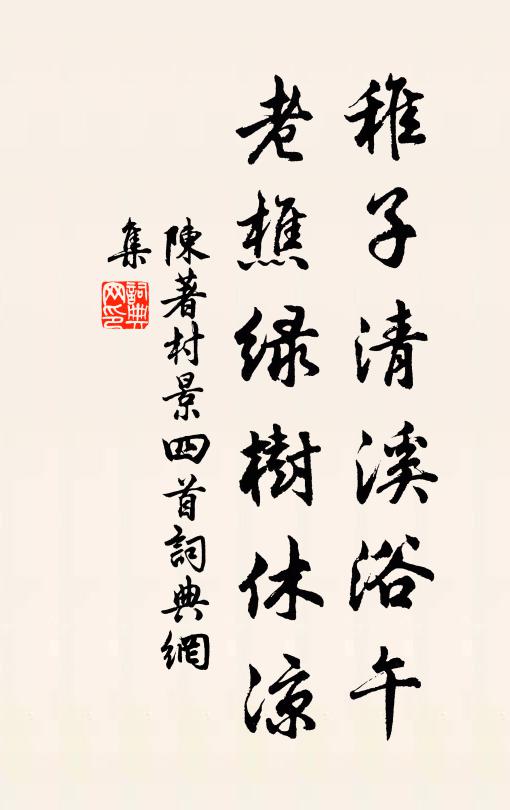 稚子清溪浴午
老樵緑樹休涼
陳著村景四首詞典網
集
詞典
网印